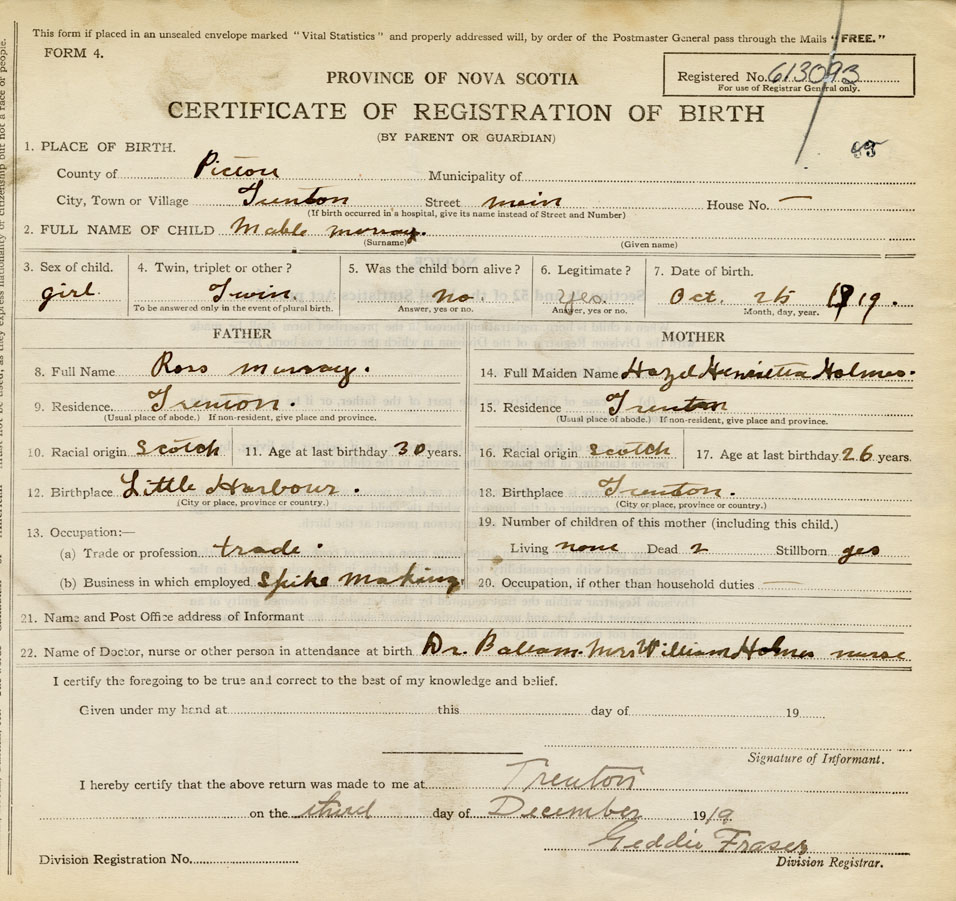 This form if placed in an unsealed envelope marked "Vital Statistics" and properly addressed will, by order of the Postmaster General pass through the Mails "FREE."
FORM 4.
PROVINCE OF NOVA SCOTIA
Registered No. 613093
For use of Registrar General only.
CERTIFICATE OF REGISTRATION OF BIRTH
(BY PARENT OR GUARDIAN)
1. PLACE OF BIRTH.
County of Pictou Municipality of
City, Town or Village Trenton Street main House No. —
(If birth occurred in a hospital, give its name instead of Street and Number)
2. FULL NAME OF CHILD Mable murray.
(Surname) (Given name)
3. Sex of child. 4. Twin, triplet or other? 5. Was the child born alive? 6. Legitimate? 7. Date of birth.
girl. Twin. no. Yes. Oct. 25 1919.
To be answered only in the event of plural birth. Answer, yes or no. Answer, yes or no. Month, day, year.
FATHER MOTHER
8. Full Name Ross murray. 14. Full Maiden Name Hazel Henrietta Holmes.
9. Residence Trenton. 15. Residence Trenton
(Usual place of abode.) If non-resident, give place and province. (Usual place of abode.) If non-resident, give place and province.
10. Racial origin scotch 11. Age at last birthday 30 years. 16. Racial origin scotch 17. Age at last birthday 26 years.
12. Birthplace Little Harbour. 18. Birthplace Trenton.
(City or place, province or country.) (City or place, province or country.)
13. Occupation:— 19. Number of children of this mother (including this child.)
(a) Trade or profession trade. Living none Dead 2 Stillborn yes
(b) Business in which employed Spike Making 20. Occupation, if other than household duties
21. Name and Post Office address of Informant
22. Name of Doctor, nurse or other person in attendance at birth Dr. Mrs William Holmes nurse
I certify the foregoing to be true and correct to the best of my knowledge and belief.
Given under my hand at this day of 19
Signature of Informant.
I hereby certify that the above return was made to me at Trenton
on the third day of December 1919.
Geddie Fraser
Division Registration No. Division Registrar.